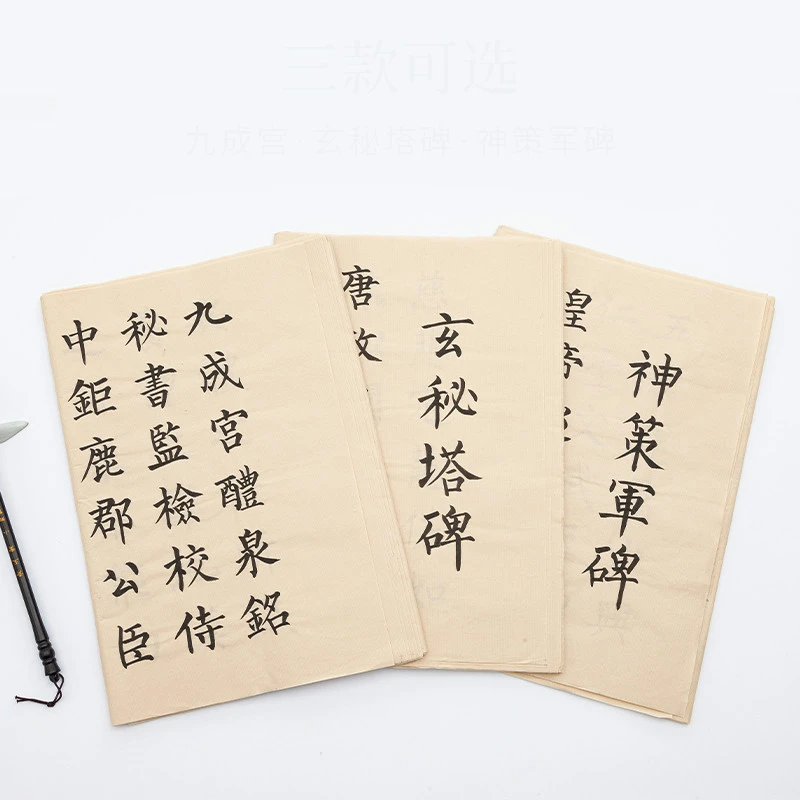 三款可选
九成宫·玄秘塔碑·神策军碑
九成宮醴泉銘
秘書監檢校侍
中鉅鹿郡公臣
玄秘塔碑
唐故
神策軍碑
皇帝